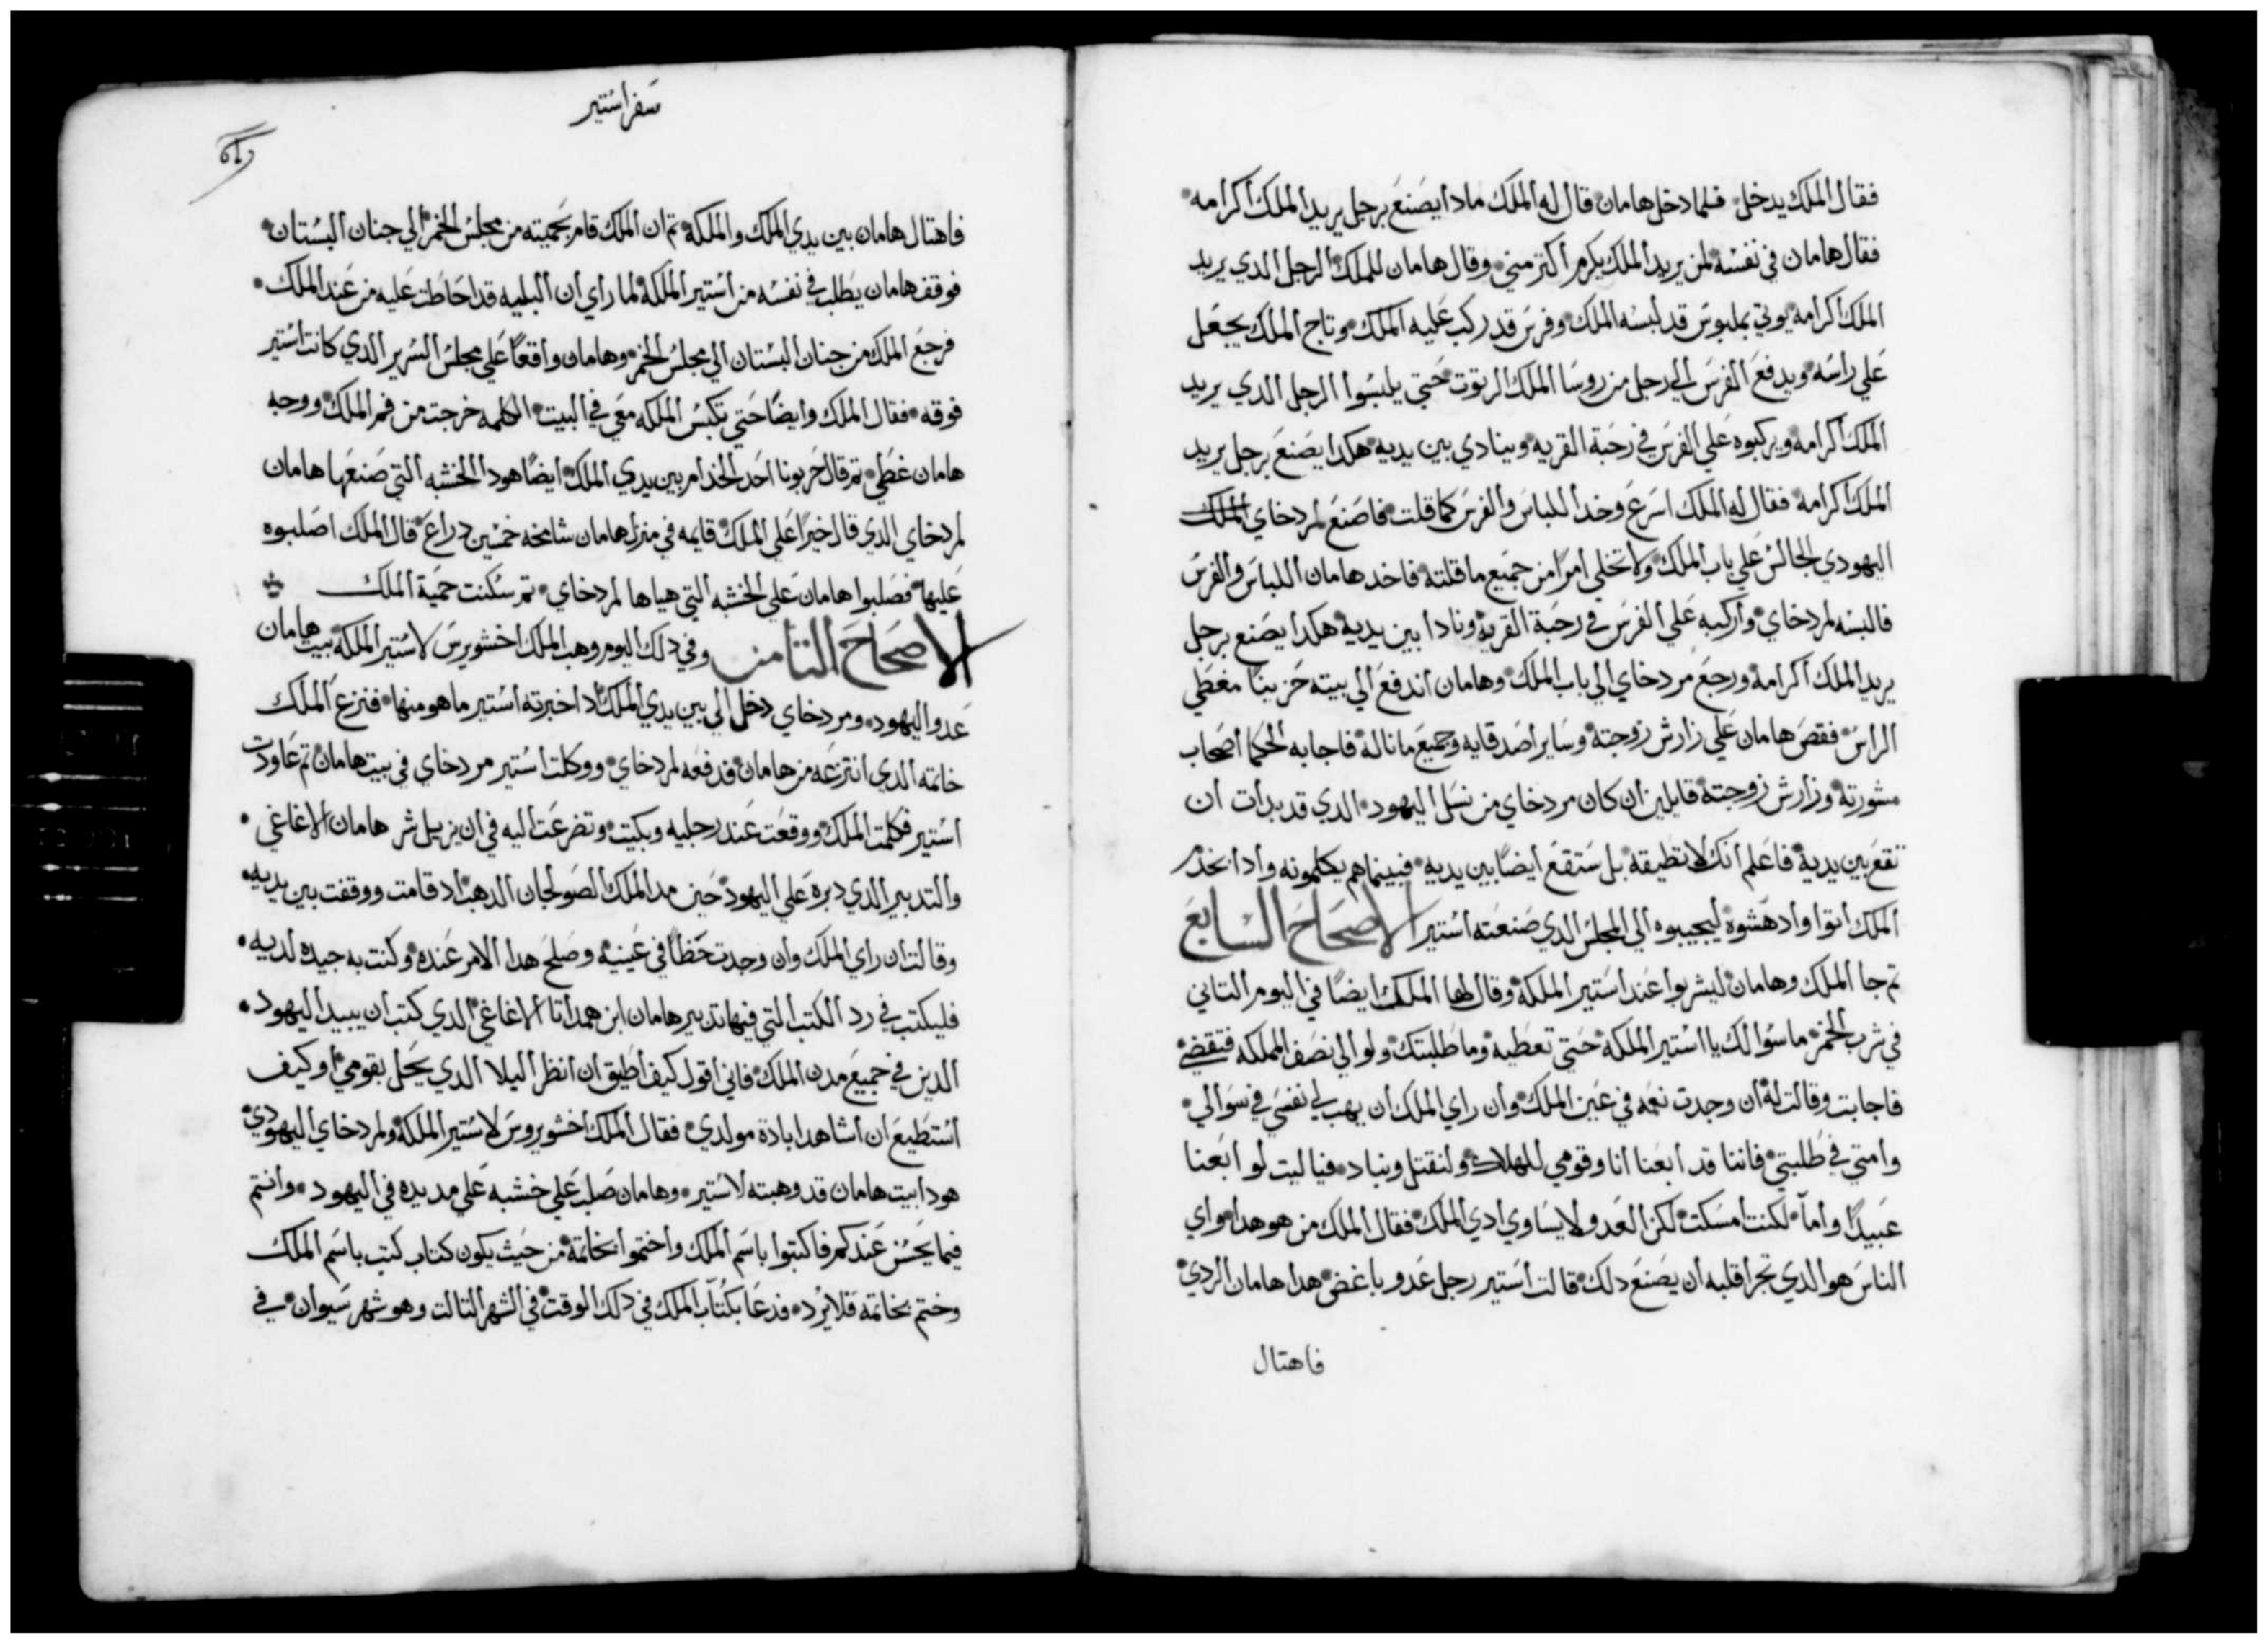 فقال الملك يدخل فلما دخل هامان قال له الملك مادا يصنع برجل يريد الملك اكرامه
فقال هامان في نفسه لمن يريد الملك يكرم اكتر مني وقال هامان للملك الرجل الدي يريد
الملك اكرامه يوتي بملبوس قد لبسه الملك وفرس قد ركب عليه الملك وتاج الملك يجعل
علي راسه ويدفع الفرس الي رجل من روسا الملك الرتوت حتي يلبسوا الرجل الدي يريد
الملك اكرامه ويركبوه علي الفرس في رحبة القريه وينادي بين يديه هكدا يصنع برجل يريد
الملك اكرامه فقال له الملك اسرع وخد اللباس والفرس كما قلت فاصنع لمردخاي الملك
اليهودي الجالس علي باب الملك ولا تخلي امرا من جميع ما قلته فاخد هامان اللباس والفرس
فالبسه لمردخاي واركبه علي الفرس في رحبة القريه ونادا بين يديه هكدا يصنع برجل
يريد الملك اكرامه ورجع مردخاي الي باب الملك وهامان اندفع الي بيته حزينا مغطي
الراس فقص هامان علي زارش زوجته وساير اصدقايه وجميع ما ناله فاجابه الحكما اصحاب
مشورته وزارش زوجته قايلين ان كان مردخاي من نسل اليهود الدي قد بدات ان
تقع بين يديه فاعلم انك لا تطيقه بل ستقع ايضا بين يديه فبينما هم يكلمونه وادا بخدر
الملك اتوا وادهشوه ليجيبوه الي المجلس الدي صنعته استير الاصحاح السابع
تم جا الملك وهامان ليشربوا عند استير الملكه وقال لها الملك ايضا في اليوم التاني
في شرب الخمر ما سوالك يا استير الملكه حتي تعطيه وما طلبتك ولو الي نصف المملكه فتقضي
فاجابت وقالت له ان وجدت نعمه في عين الملك وان راي الملك ان يهب لي نفسي في سوالي
وامتي في طلبتي فاننا قد ابعنا انا وقومي للهلاك ولنقتل ونباد فياليت لو ابعنا
عبيدا واما لكنت امسكت لكن العدو لا يساوي ادي الملك فقال الملك من هو هدا واي
الناس هو الدي تجرا قلبه ان يصنع دلك قالت استير رجل عدو باغض هدا هامان الردي
فاهتال
سفر استير
فاهتال هامان بين يدي الملك والملكه تم ان الملك قام بحميته من مجلس الخمر الي جنان البستان
فوقف هامان يطلب في نفسه من استير الملكه لما راي ان البليه قد احاطت عليه من عند الملك
فرجع الملك من جنان البستان الي مجلس الخمر وهامان واقعا علي مجلس السرير الدي كانت استير
فوقه فقال الملك وايضا حتي تكبس الملكه معي في البيت الكلمه خرجت من فم الملك ووجه
هامان غطي تم قال حربونا احد الخدام بين يدي الملك ايضا هودا الخشبه التي صنعها هامان
لمردخاي الدي قال خيرا علي الملك قايمه في منزل هامان شامخه خمسين دراع قال الملك اصلبوه
عليها فصلبوا هامان علي الخشبه التي هياها لمردخاي تم سكنت حمية الملك
الاصحاح التامن وفي دلك اليوم وهب الملك اخشويرس لاستير الملكه بيت هامان
عدو اليهود ومردخاي دخل الي بين يدي الملك اد اخبرته استير ما هو منها فنزع الملك
خاتمه الدي انتزعه من هامان فدفعه لمردخاي ووكلت استير مردخاي في بيت هامان تم عاودت
استير فكلمت الملك ووقعت عند رجليه وبكيت وتضرعت اليه في ان يزيل شر هامان الاغاغي
والتدبير الدي دبره علي اليهود حين مد الملك الصولجان الدهب اد قامت ووقفت بين يديه
وقالت ان راي الملك وان وجدت حظا في عينيه وصلح هدا الامر عنده وكنت به جيده لديه
فليكتب في رد الكتب التي فيها تدبير هامان ابن همداتا الاغاغي الدي كتب ان يبيد اليهود
الدين في جميع مدن الملك فاني اقول كيف اطيق ان انظر البلا الدي يحل بقومي او كيف
استطيع ان اشاهد ابادة مولدي فقال الملك اخشويروس لاستير الملكه ولمردخاي اليهودي
هودا بيت هامان قد وهبته لاستير وهامان صلب علي خشبه علي مد يده في اليهود وانتم
فيما يحسن عندكم فاكتبوا باسم الملك واختموا بخاتمه من حيث يكون كتاب كتب باسم الملك
وختم بخاتمه فلا يرد فدعا بكتاب الملك في دلك الوقت في الشهر التالت وهو شهر سيوان في